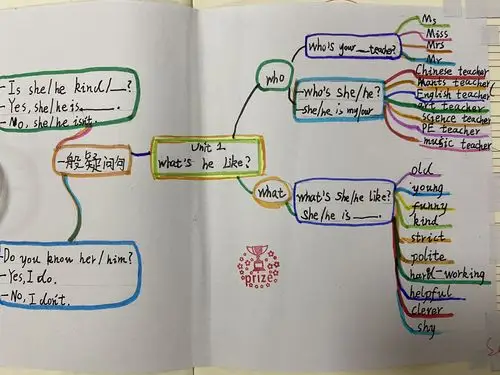 Unit 1
what's he like?
who
who's your __teacher?
Ms
Miss
Mrs
Mr
-who's she/he?
-she/he is my/our
Chinese teacher
maths teacher
English teacher
art teacher
science teacher
PE teacher
music teacher
what
what's she/he like?
she/he is ___.
old
young
funny
kind
strict
polite
hard-working
helpful
clever
shy
一般疑问句
-Is she/he kind/__?
-Yes, she/he is____.
-No, she/he isn't.
-Do you know her/him?
-Yes, I do.
-No, I don't.
prize